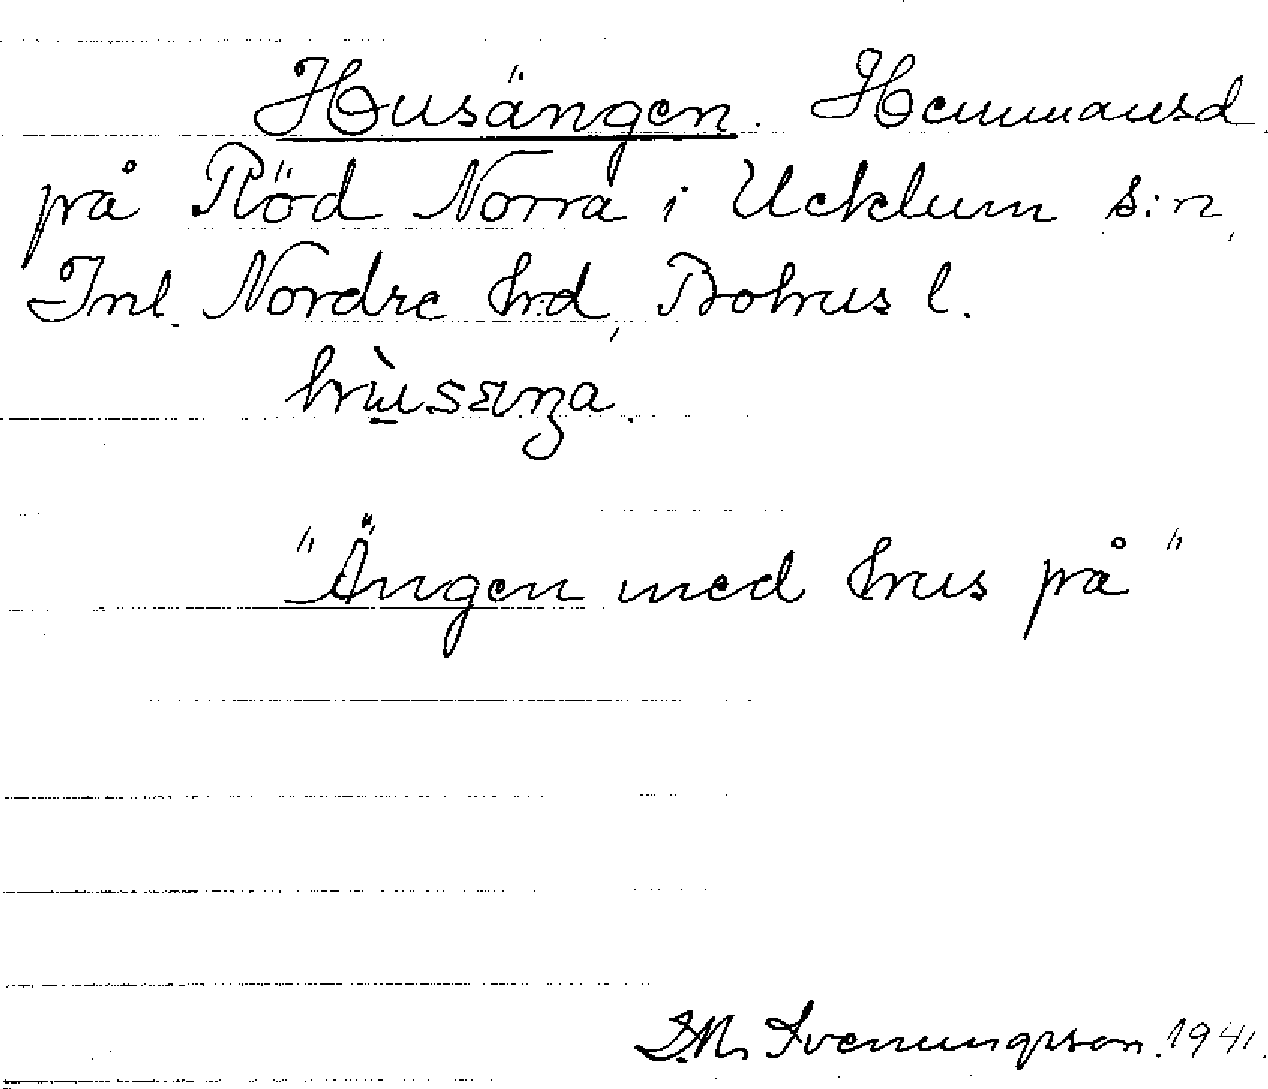 Husängen. Hemmansd
på Röd Norra i Ucklum s:n,
Inl. Nordre hrd, Bohus l.
hùsæŋa.
"Ängen med hus på"
Svenungsson. 1941.